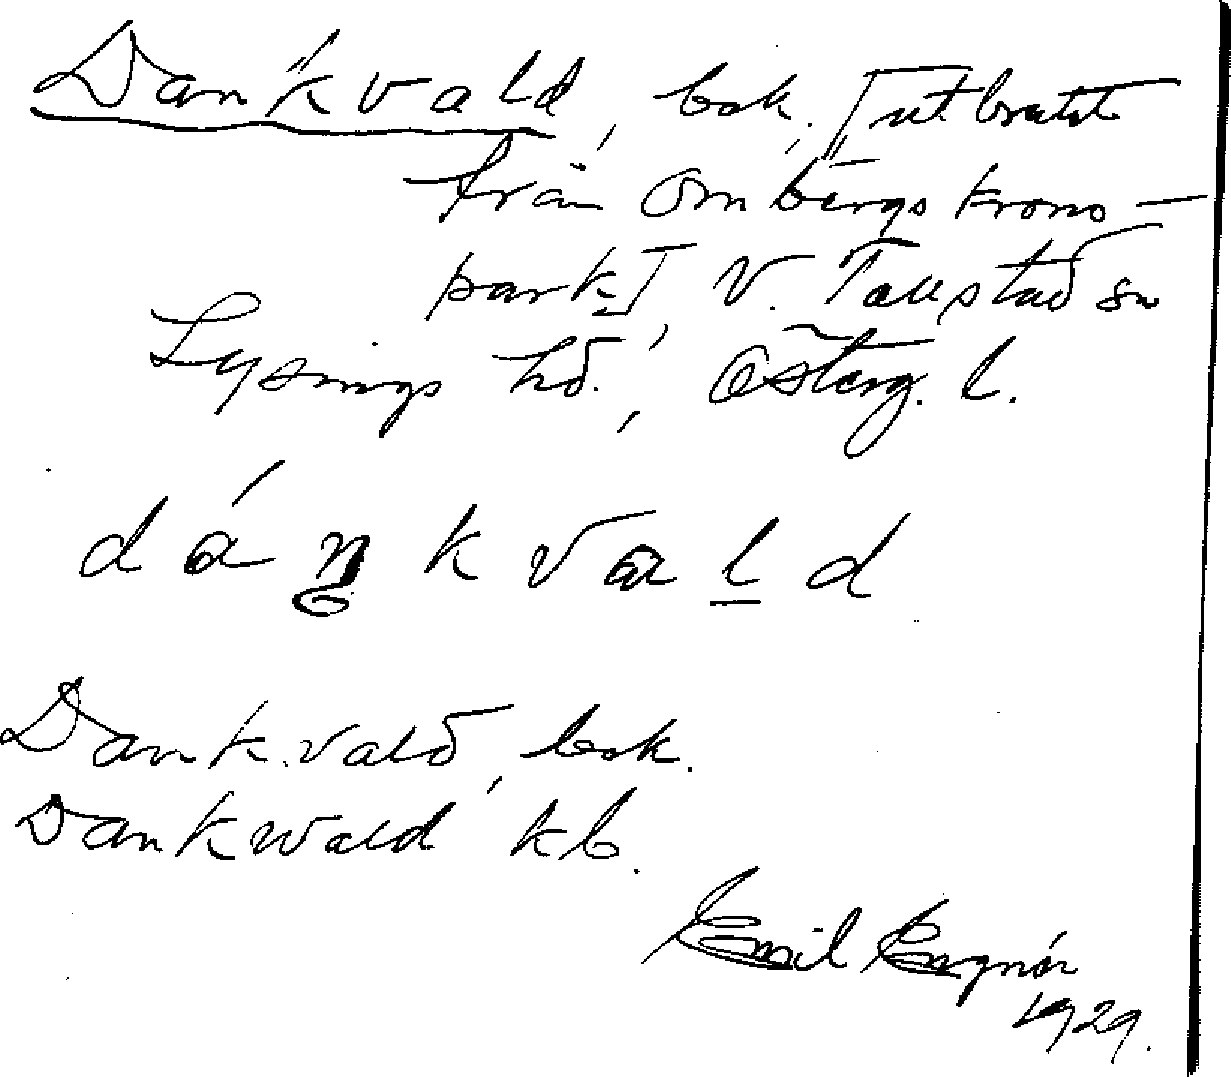 Dankvald, bok. [utbrutet
från Ombergs krono-
park] V. Tollstad sn
Lysings hd., Österg. l.
dáŋkvald
Dankvald, bok.
Dankwald kb.
Emil
1929.